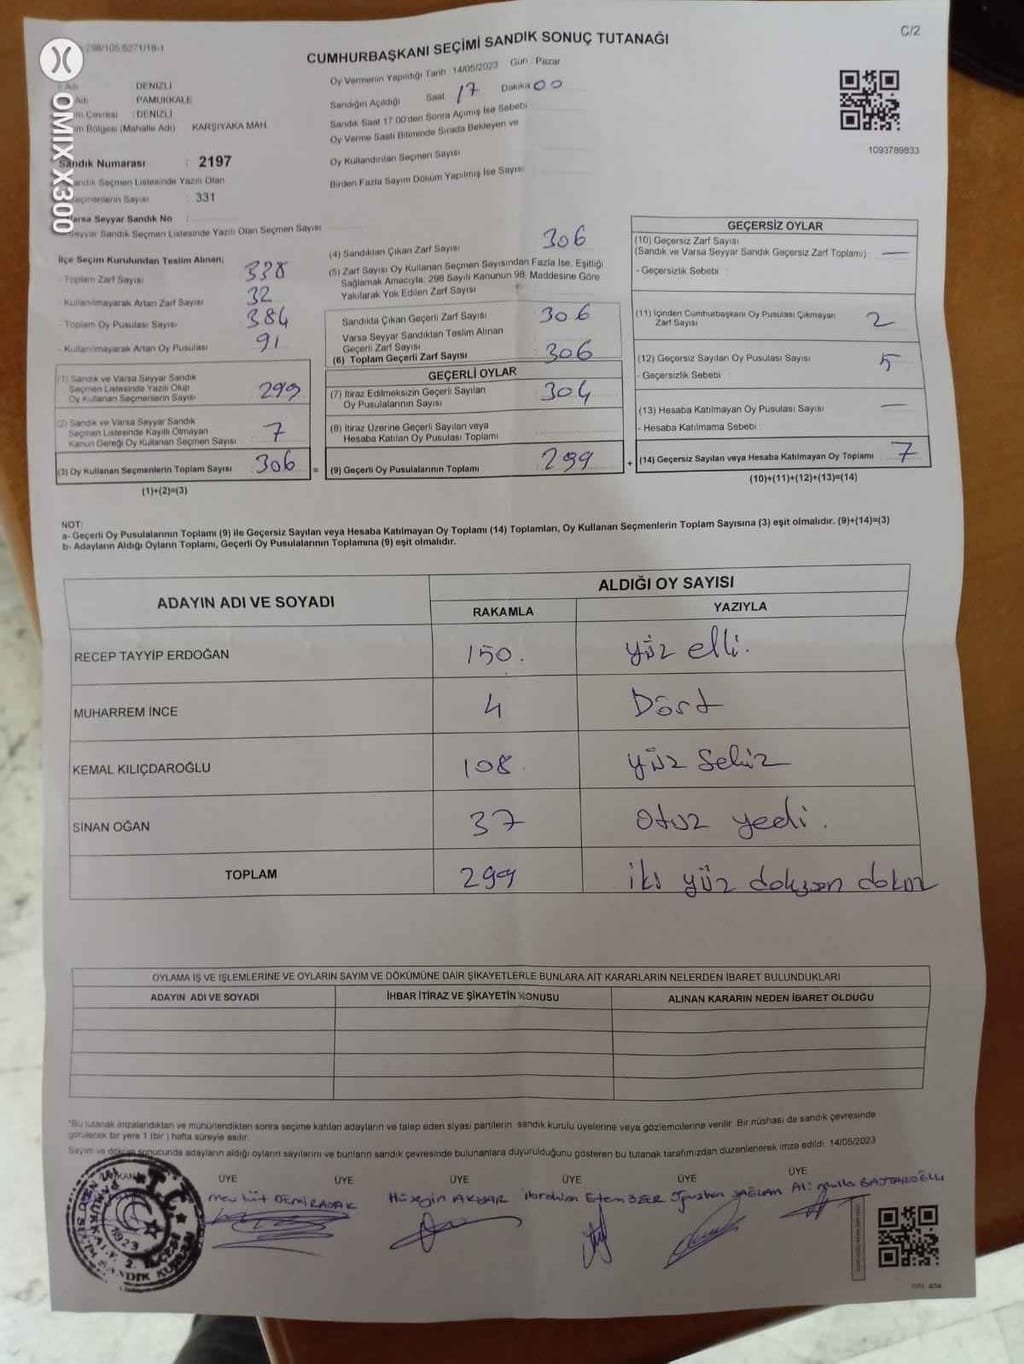 298/105/6271/18-1
C/2
CUMHURBAŞKANI SEÇİMİ SANDIK SONUÇ TUTANAĞI
OMIX X300
Oy Vermenin Yapıldığı Tarih 14/05/2023 Gün Pazar
DENİZLİ
PAMUKKALE
DENİZLİ
Bölgesi (Mahalle Adı) KARŞIYAKA MAH.
Sandık Numarası : 2197
Sandık Seçmen Listesinde Yazılı Olan
Seçmenlerin Sayısı : 331
Varsa Seyyar Sandık No :
Seyyar Sandık Seçmen Listesinde Yazılı Olan Seçmen Sayısı
Sandığın Açıldığı Saat 17 Dakika 00
Sandık Saat 17.00'den Sonra Açılmış İse Sebebi
Oy Verme Saati Bitiminde Sırada Bekleyen ve
Oy Kullandırılan Seçmen Sayısı
Birden Fazla Sayım Döküm Yapılmış İse Sayısı
1093789833
İlçe Seçim Kurulundan Teslim Alınan;
- Toplam Zarf Sayısı 338
- Kullanılmayarak Artan Zarf Sayısı 32
- Toplam Oy Pusulası Sayısı 384
- Kullanılmayarak Artan Oy Pusulası 91
(1) Sandık ve Varsa Seyyar Sandık
Seçmen Listesinde Yazılı Olup
Oy Kullanan Seçmenlerin Sayısı 299
(2) Sandık ve Varsa Seyyar Sandık
Seçmen Listesinde Kayıtlı Olmayan
Kanun Gereği Oy Kullanan Seçmen Sayısı 7
(3) Oy Kullanan Seçmenlerin Toplam Sayısı 306 =
(1)+(2)=(3)
(4) Sandıktan Çıkan Zarf Sayısı 306
(5) Zarf Sayısı Oy Kullanan Seçmen Sayısından Fazla İse, Eşitliği
Sağlamak Amacıyla; 298 Sayılı Kanunun 98. Maddesine Göre
Yakılarak Yok Edilen Zarf Sayısı
Sandıkta Çıkan Geçerli Zarf Sayısı 306
Varsa Seyyar Sandıktan Teslim Alınan
Geçerli Zarf Sayısı
(6) Toplam Geçerli Zarf Sayısı 306
GEÇERLİ OYLAR
(7) İtiraz Edilmeksizin Geçerli Sayılan
Oy Pusulalarının Sayısı 304
(8) İtiraz Üzerine Geçerli Sayılan veya
Hesaba Katılan Oy Pusulası Toplamı
(9) Geçerli Oy Pusulalarının Toplamı 299 +
GEÇERSİZ OYLAR
(10) Geçersiz Zarf Sayısı
(Sandık ve Varsa Seyyar Sandık Geçersiz Zarf Toplamı) —
- Geçersizlik Sebebi :
(11) İçinden Cumhurbaşkanı Oy Pusulası Çıkmayan
Zarf Sayısı 2
(12) Geçersiz Sayılan Oy Pusulası Sayısı 5
- Geçersizlik Sebebi :
(13) Hesaba Katılmayan Oy Pusulası Sayısı —
- Hesaba Katılmama Sebebi :
(14) Geçersiz Sayılan veya Hesaba Katılmayan Oy Toplamı 7
(10)+(11)+(12)+(13)=(14)
NOT:
a- Geçerli Oy Pusulalarının Toplamı (9) ile Geçersiz Sayılan veya Hesaba Katılmayan Oy Toplamı (14) Toplamları, Oy Kullanan Seçmenlerin Toplam Sayısına (3) eşit olmalıdır. (9)+(14)=(3)
b- Adayların Aldığı Oyların Toplamı, Geçerli Oy Pusulalarının Toplamına (9) eşit olmalıdır.
ADAYIN ADI VE SOYADI
ALDIĞI OY SAYISI
RAKAMLA YAZIYLA
RECEP TAYYİP ERDOĞAN 150. yüz elli.
MUHARREM İNCE 4 Dört
KEMAL KILIÇDAROĞLU 108 yüz Sekiz
SİNAN OĞAN 37 otuz yedi.
TOPLAM 299 iki yüz doksan dokuz
OYLAMA İŞ VE İŞLEMLERİNE VE OYLARIN SAYIM VE DÖKÜMÜNE DAİR ŞİKAYETLERLE BUNLARA AİT KARARLARIN NELERDEN İBARET BULUNDUKLARI
ADAYIN ADI VE SOYADI İHBAR İTİRAZ VE ŞİKAYETİN KONUSU ALINAN KARARIN NEDEN İBARET OLDUĞU
"Bu tutanak imzalandıktan ve mühürlendikten sonra seçime katılan adayların ve talep eden siyasi partilerin, sandık kurulu üyelerine veya gözlemcilerine verilir. Bir nüshası da sandık çevresinde
görülecek bir yere 1 (bir) hafta süreyle asılır.
Sayım ve döküm sonucunda adayların aldığı oyların sayılarını ve bunların sandık çevresinde bulunanlara duyurulduğunu gösteren bu tutanak tarafımızdan düzenlenerek imza edildi. 14/05/2023
ÜYE ÜYE ÜYE ÜYE ÜYE ÜYE
Mevlüt DEMİRADAK Hüseyin AKBAR İbrahim Ethem ÖZER Oğuzhan SAĞLAM
T.C.
1923
SANDIK KURULU